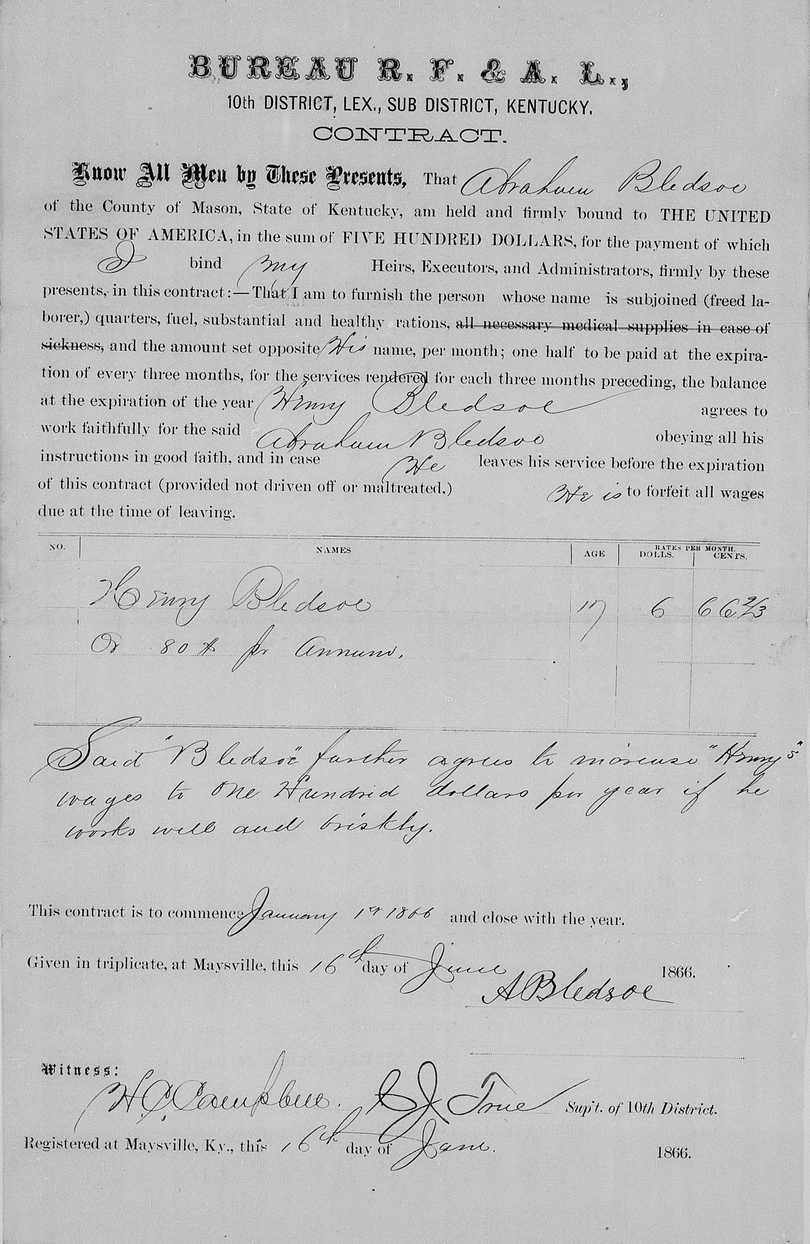 BUREAU R. F. & A. L.,
10th DISTRICT, LEX., SUB DISTRICT, KENTUCKY.
CONTRACT.
Know All Men by These Presents, That Abraham Bledsoe
of the County of Mason, State of Kentucky, am held and firmly bound to THE UNITED
STATES OF AMERICA, in the sum of FIVE HUNDRED DOLLARS, for the payment of which
I bind my Heirs, Executors, and Administrators, firmly by these
presents, in this contract:—That I am to furnish the person whose name is subjoined (freed la-
borer,) quarters, fuel, substantial and healthy rations, all necessary medical supplies in case of
sickness, and the amount set opposite His name, per month; one half to be paid at the expira-
tion of every three months, for the services rendered for each three months preceding, the balance
at the expiration of the year Henry Bledsoe agrees to
work faithfully for the said Abraham Bledsoe obeying all his
instructions in good faith, and in case He leaves his service before the expiration
of this contract (provided not driven off or maltreated,) He is to forfeit all wages
due at the time of leaving.
NO. NAMES AGE RATES PER MONTH.
DOLLS. CENTS.
Henry Bledsoe 17 6 66 2/3
Or 80 $ pr Annum.
Said "Bledsoe" further agrees to increase "Henry"s
wages to One Hundred dollars per year if he
works well and briskly.
This contract is to commence January 1st 1866 and close with the year.
Given in triplicate, at Maysville, this 16th day of June 1866.
A Bledsoe
Witness:
H. C. Campbell. C J True Sup't. of 10th District.
Registered at Maysville, Ky., this 16th day of June. 1866.